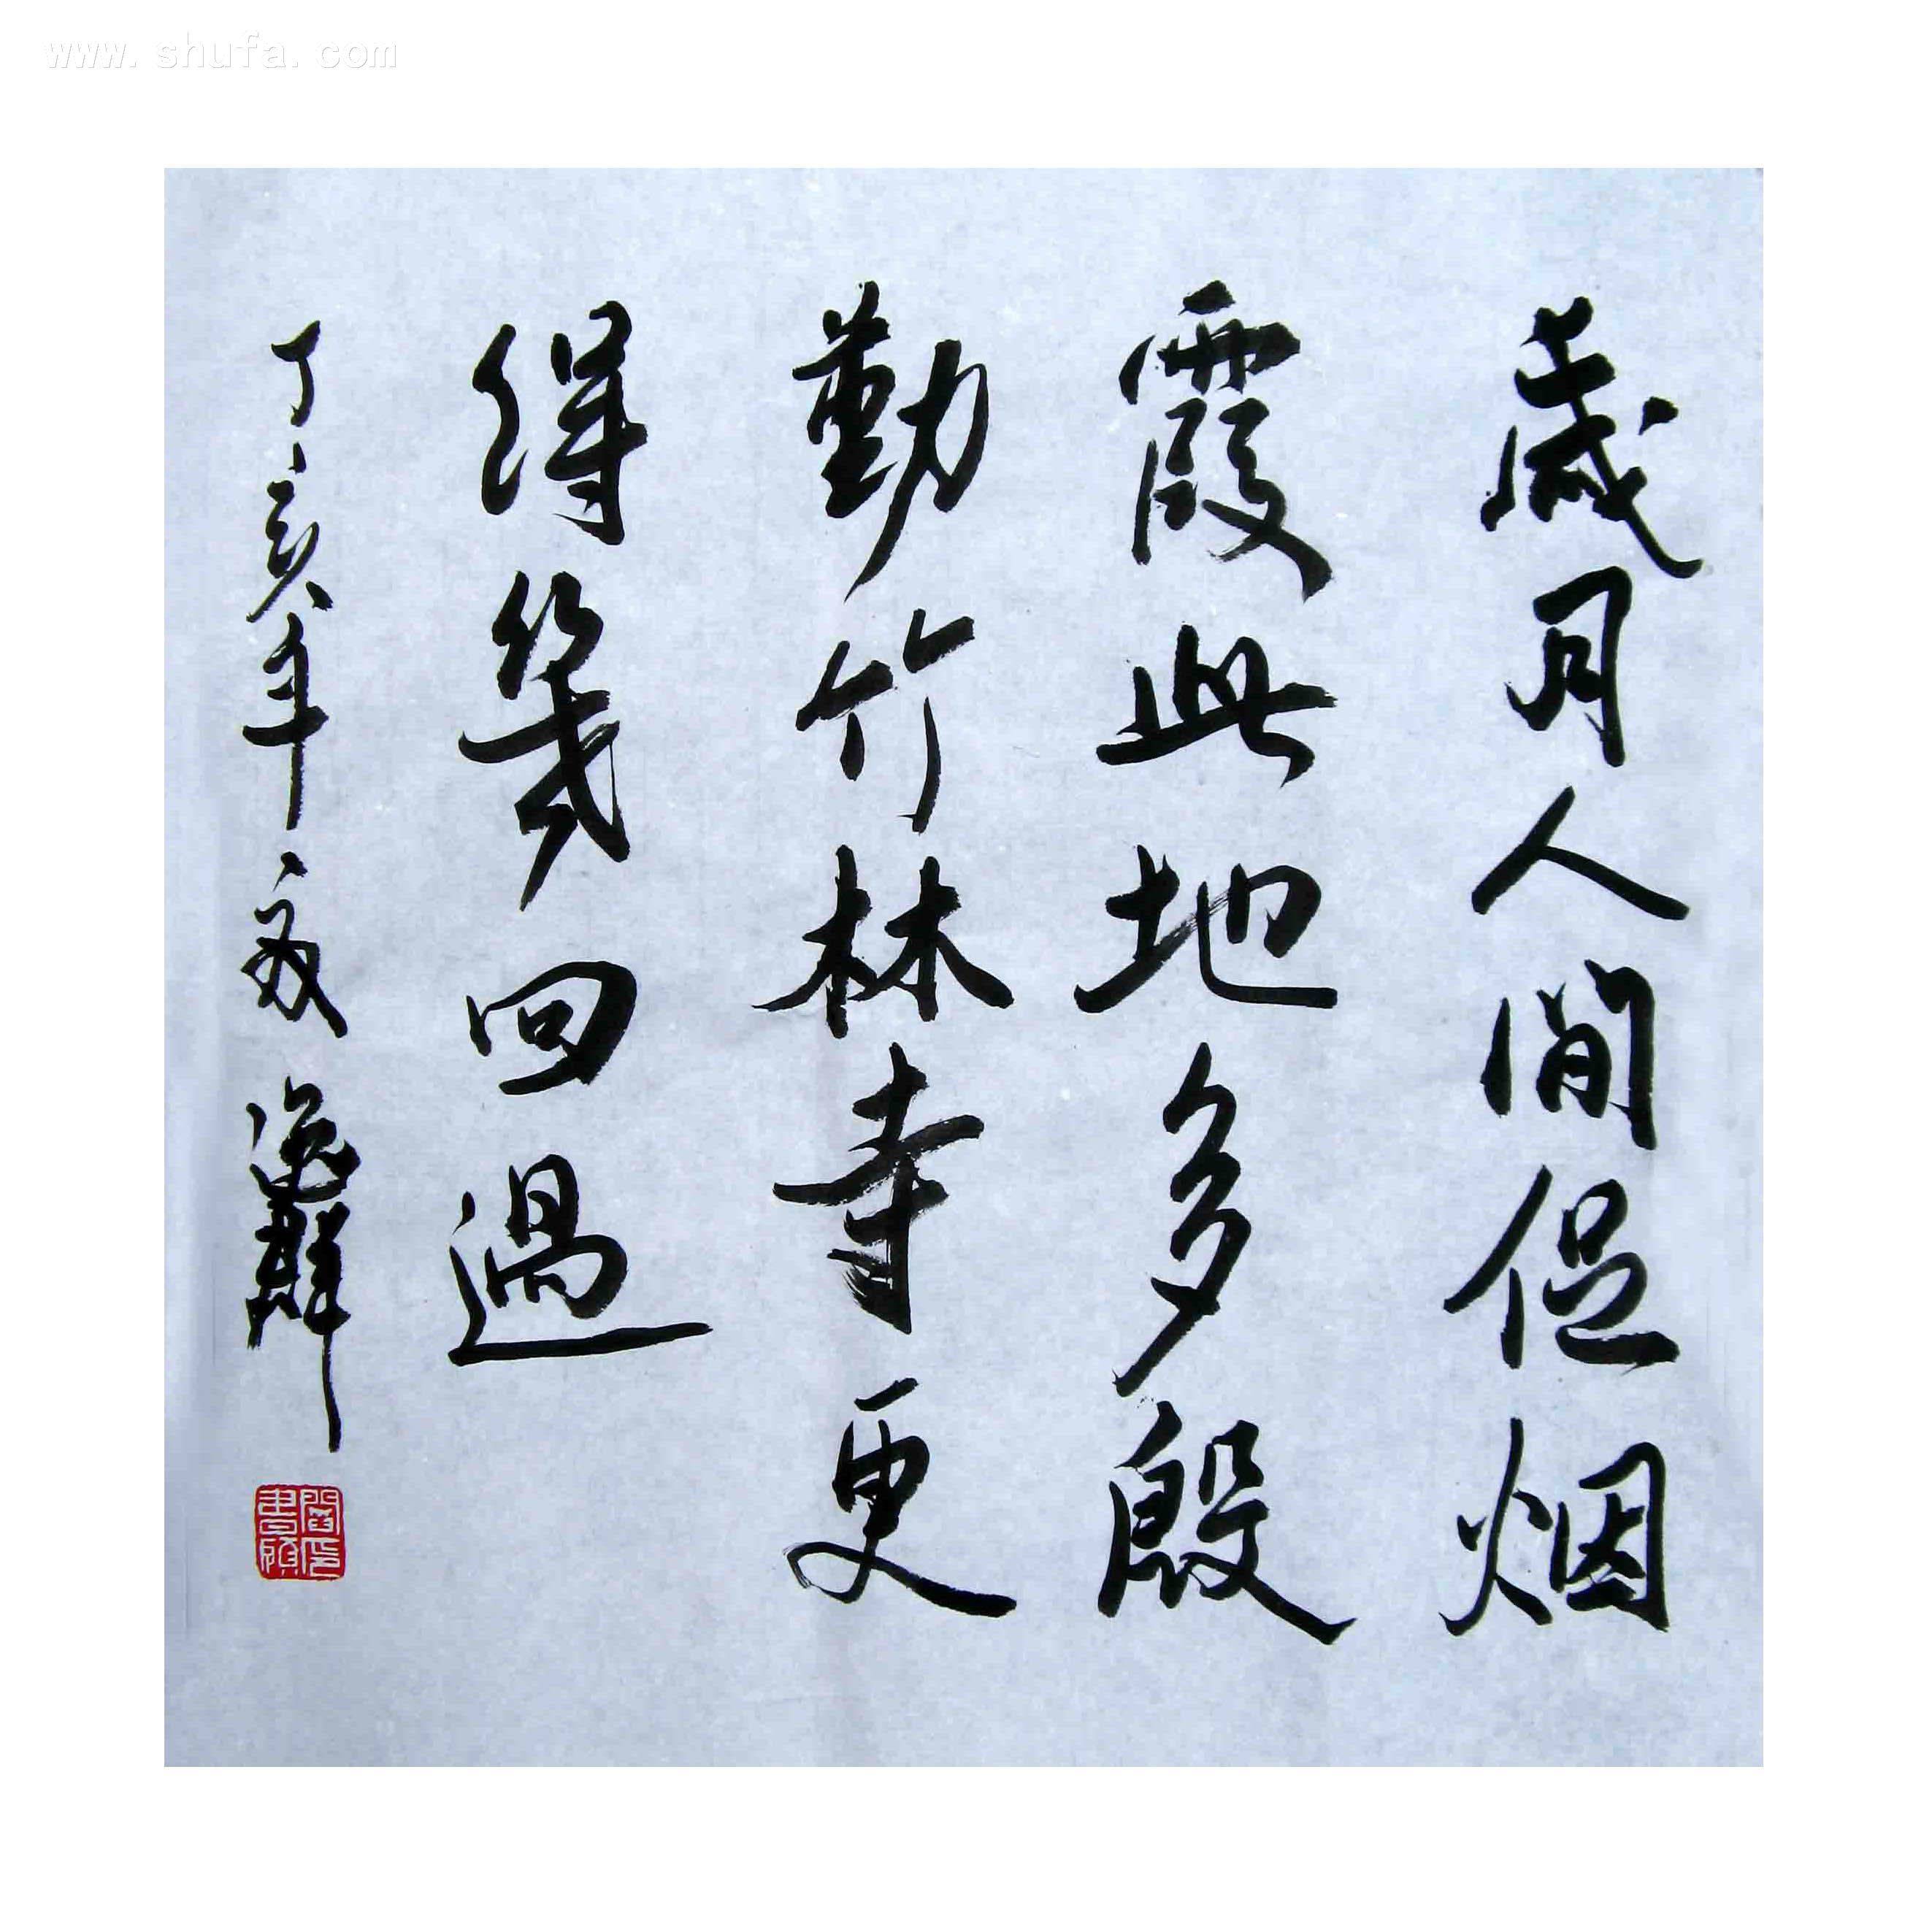 www.shufa.com
歲月人間促烟
霞此地多殷
勤竹林寺更
得幾回過
丁亥年